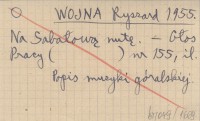 WOJNA Ryszard 1955.
Na Sabałową nutę. – Głos
Pracy ( ) nr 155, il.
Popis muzyki góralskiej.